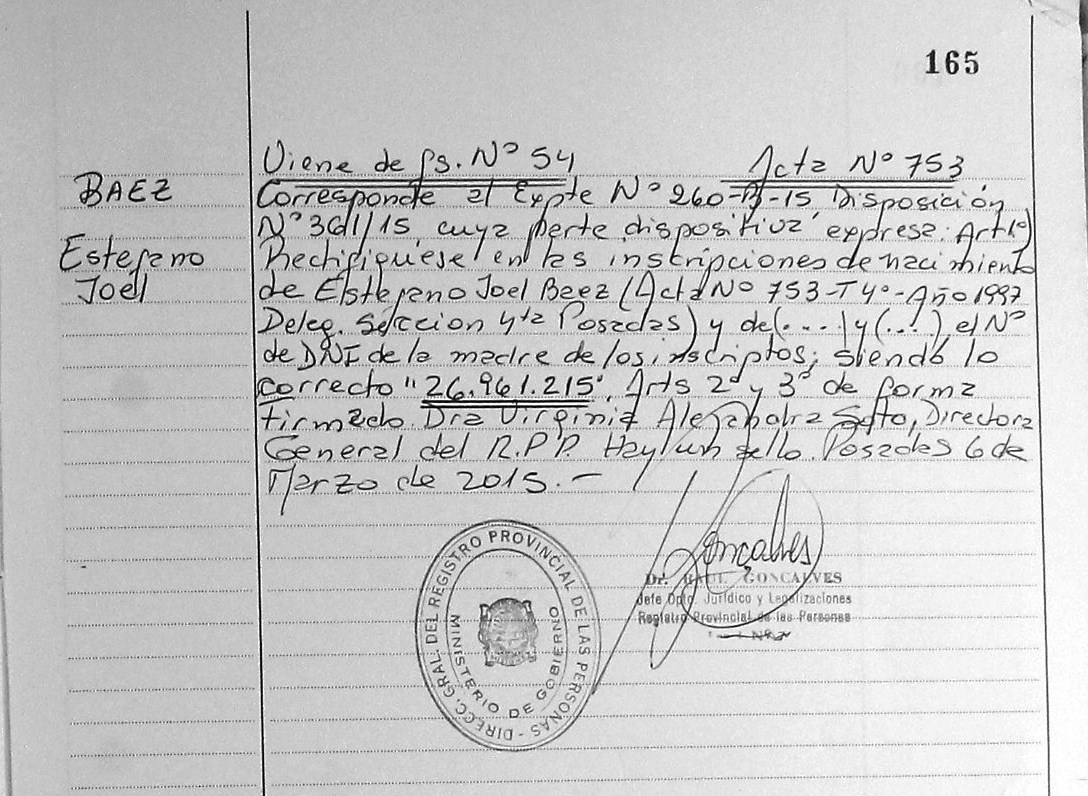 165
Viene de fs. Nº 54 Acta Nº 753
BAEZ
Estefano
Joel
Corresponde al Expte Nº 260-B-15 Disposición
Nº 361/15, cuya parte dispositiva expresa: Art 1º)
Rectifiquese en las inscripciones de nacimiento
de Estefano Joel Baez (Acta Nº 753-T 4º-Año 1997
Deleg. Sección 4ta Posadas) y de (....) y (...) el Nº
de DNI de la madre de los inscriptos; siendo lo
correcto "26.961.215". Arts 2º y 3º de forma
Firmado Dra Virginia Alejandra Soto, Directora
General del R.P.P. Hay un sello. Posadas 6 de
Marzo de 2015.-
Goncalves
Dr. RAUL GONCALVES
Jefe Dpto. Jurídico y Legalizaciones
Registro Provincial de las Personas
DIRECC. GRAL. DEL REGISTRO PROVINCIAL DE LAS PERSONAS -
MINISTERIO DE GOBIERNO